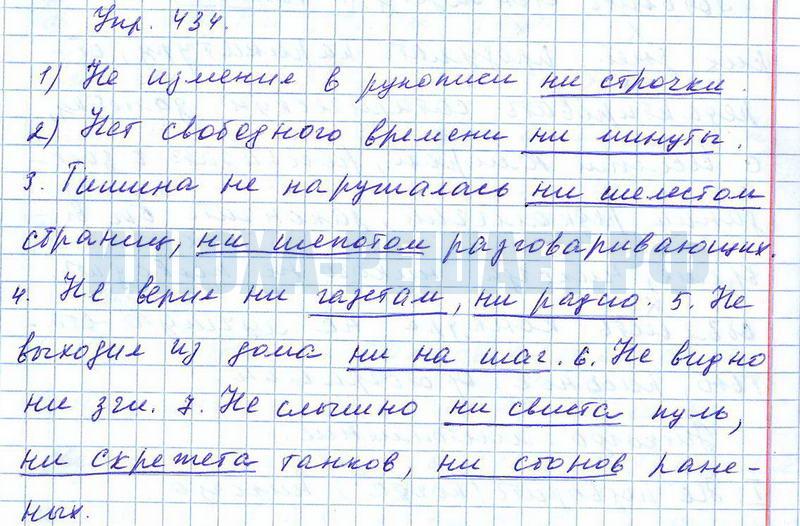 Упр. 434.
1) Не изменил в рукописи ни строчки.
2) Нет свободного времени ни минуты.
3. Тишина не нарушалась ни шелестом
страниц, ни шепотом разговаривающих.
4. Не верил ни газетам, ни радио. 5. Не
выходил из дома ни на шаг. 6. Не видно
ни зги. 7. Не слышно ни свиста пуль,
ни скрежета танков, ни стонов ране-
ных.